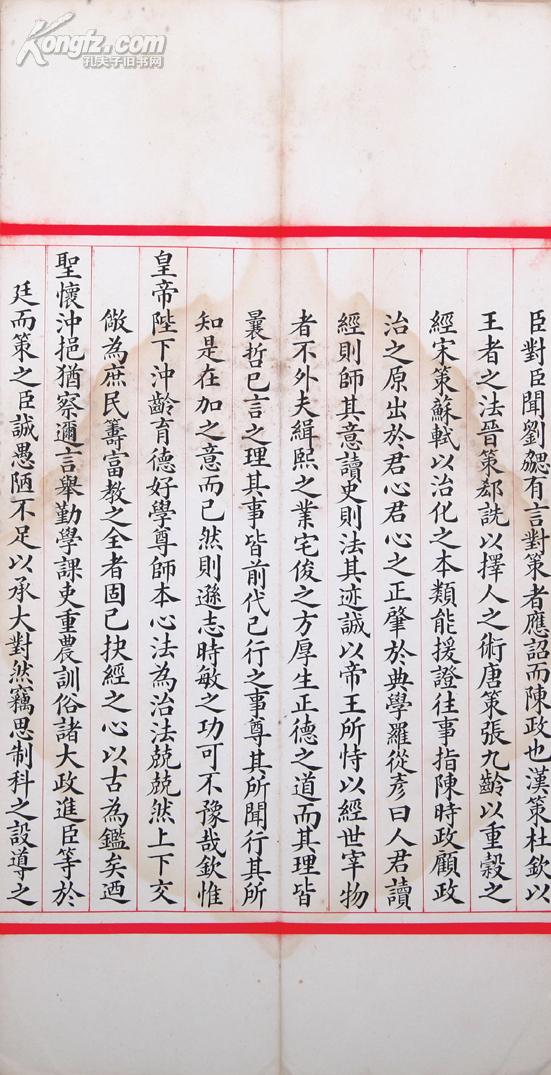 Kongfz.com
孔夫子旧书网
臣對臣聞劉勰有言對策者應詔而陳政也漢策杜欽以
王者之法晉策郄詵以擇人之術唐策張九齡以重穀之
經宋策蘇軾以治化之本類能援證往事指陳時政顧政
治之原出於君心君心之正肇於典學羅從彥曰人君讀
經則師其意讀史則法其迹誠以帝王所恃以經世宰物
者不外夫緝熙之業宅俊之方厚生正德之道而其理皆
曩哲已言之理其事皆前代已行之事尊其所聞行其所
知是在加之意而已然則遜志時敏之功可不豫哉欽惟
皇帝陛下沖齡育德好學尊師本心法為治法兢兢然上下交
儆為庶民籌富教之全者固已抉經之心以古為鑑矣迺
聖懷沖挹猶察邇言舉勤學課吏重農訓俗諸大政進臣等於
廷而策之臣誠愚陋不足以承大對然竊思制科之設導之